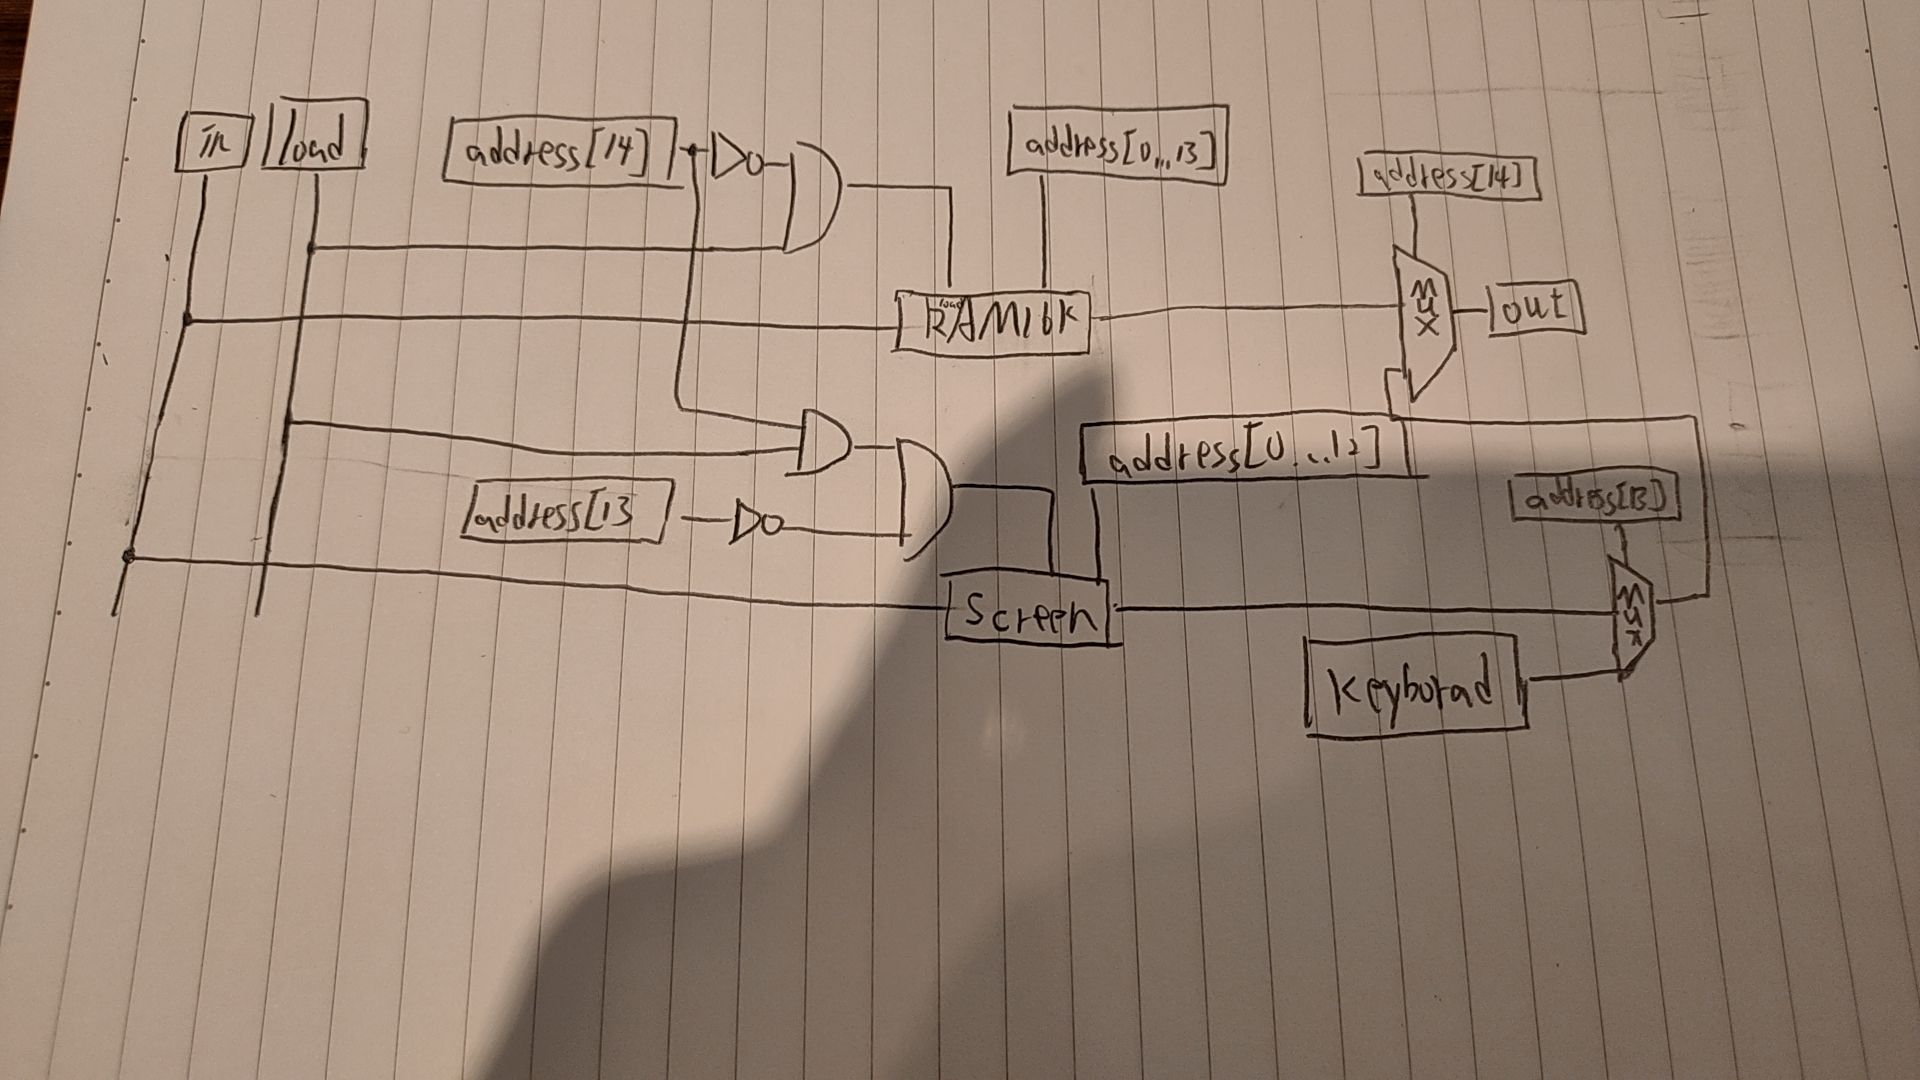 in
load
address[14]
address[0...13]
address[14]
load
RAM16K
MUX
out
address[0...12]
address[13
address[13]
Screen
MUX
Keyborad